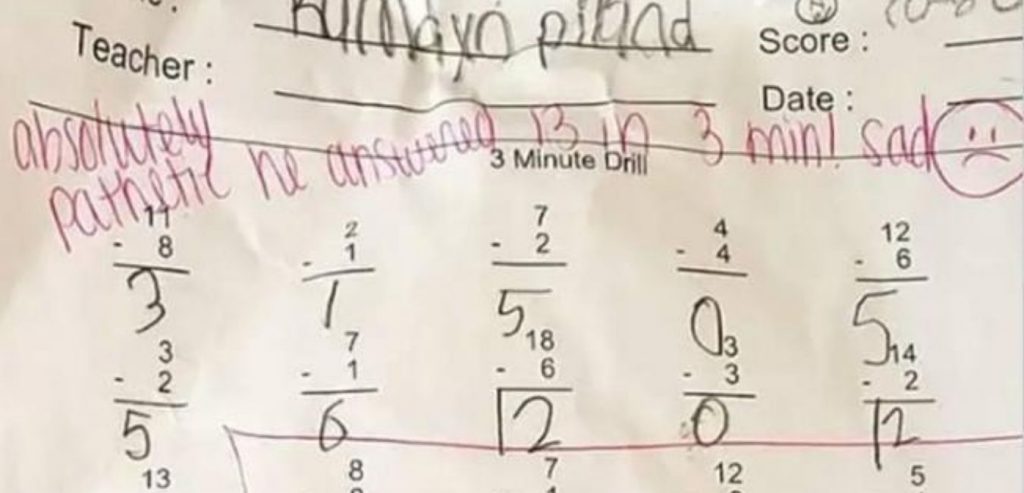 Teacher :
Score :
Date :
absolutely
pathetic he answered 13 in 3 min! sad
3 Minute Drill
11 2 7 4 12
- 8 - 1 - 2 - 4 - 6
3 1 5 0 5
3 7 18 3 14
- 2 - 1 - 6 - 3 - 2
5 6 12 0 12
13 8 7 12 5